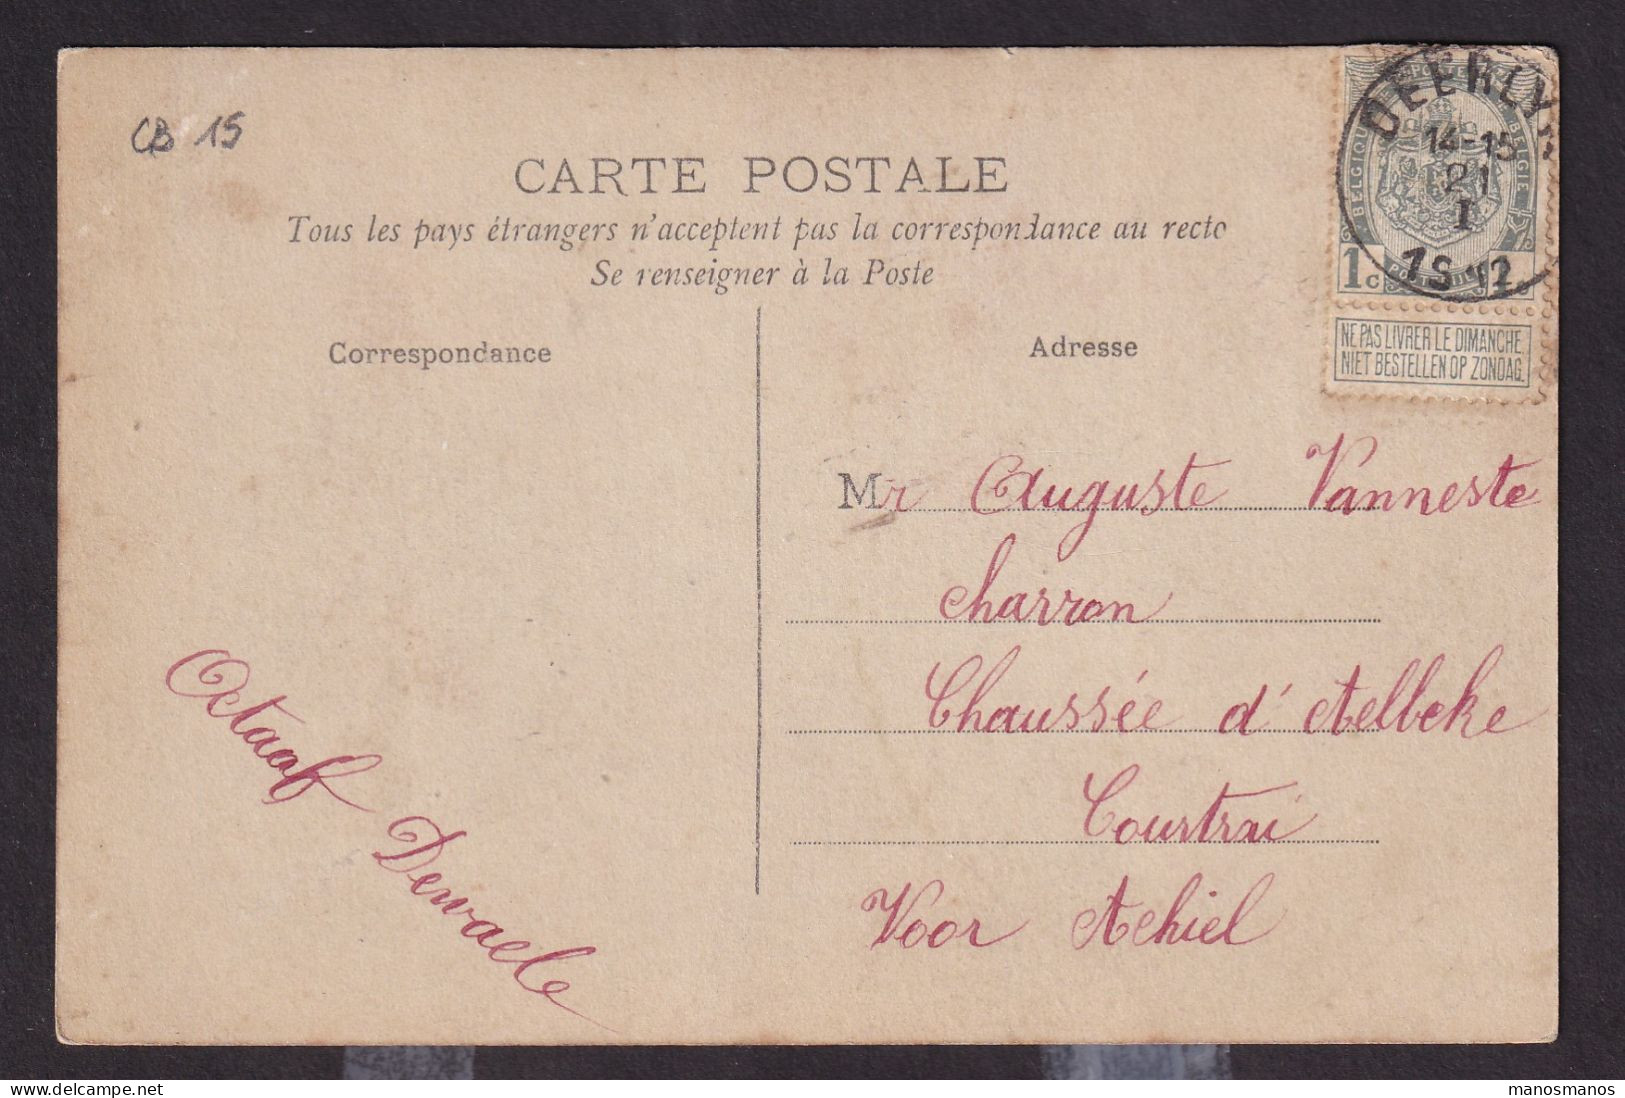 CB 15
CARTE POSTALE
Tous les pays étrangers n'acceptent pas la correspondance au recto
Se renseigner à la Poste
Correspondance
Adresse
DEERLYK
14-15
21
I
1912
BELGIQUE POSTES BELGIE
1c
NE PAS LIVRER LE DIMANCHE
NIET BESTELLEN OP ZONDAG.
Mr Auguste Vanneste
charron
Chaussée d'Aelbeke
Courtrai
Voor Achiel
Octaaf Dewaele
manosmanos